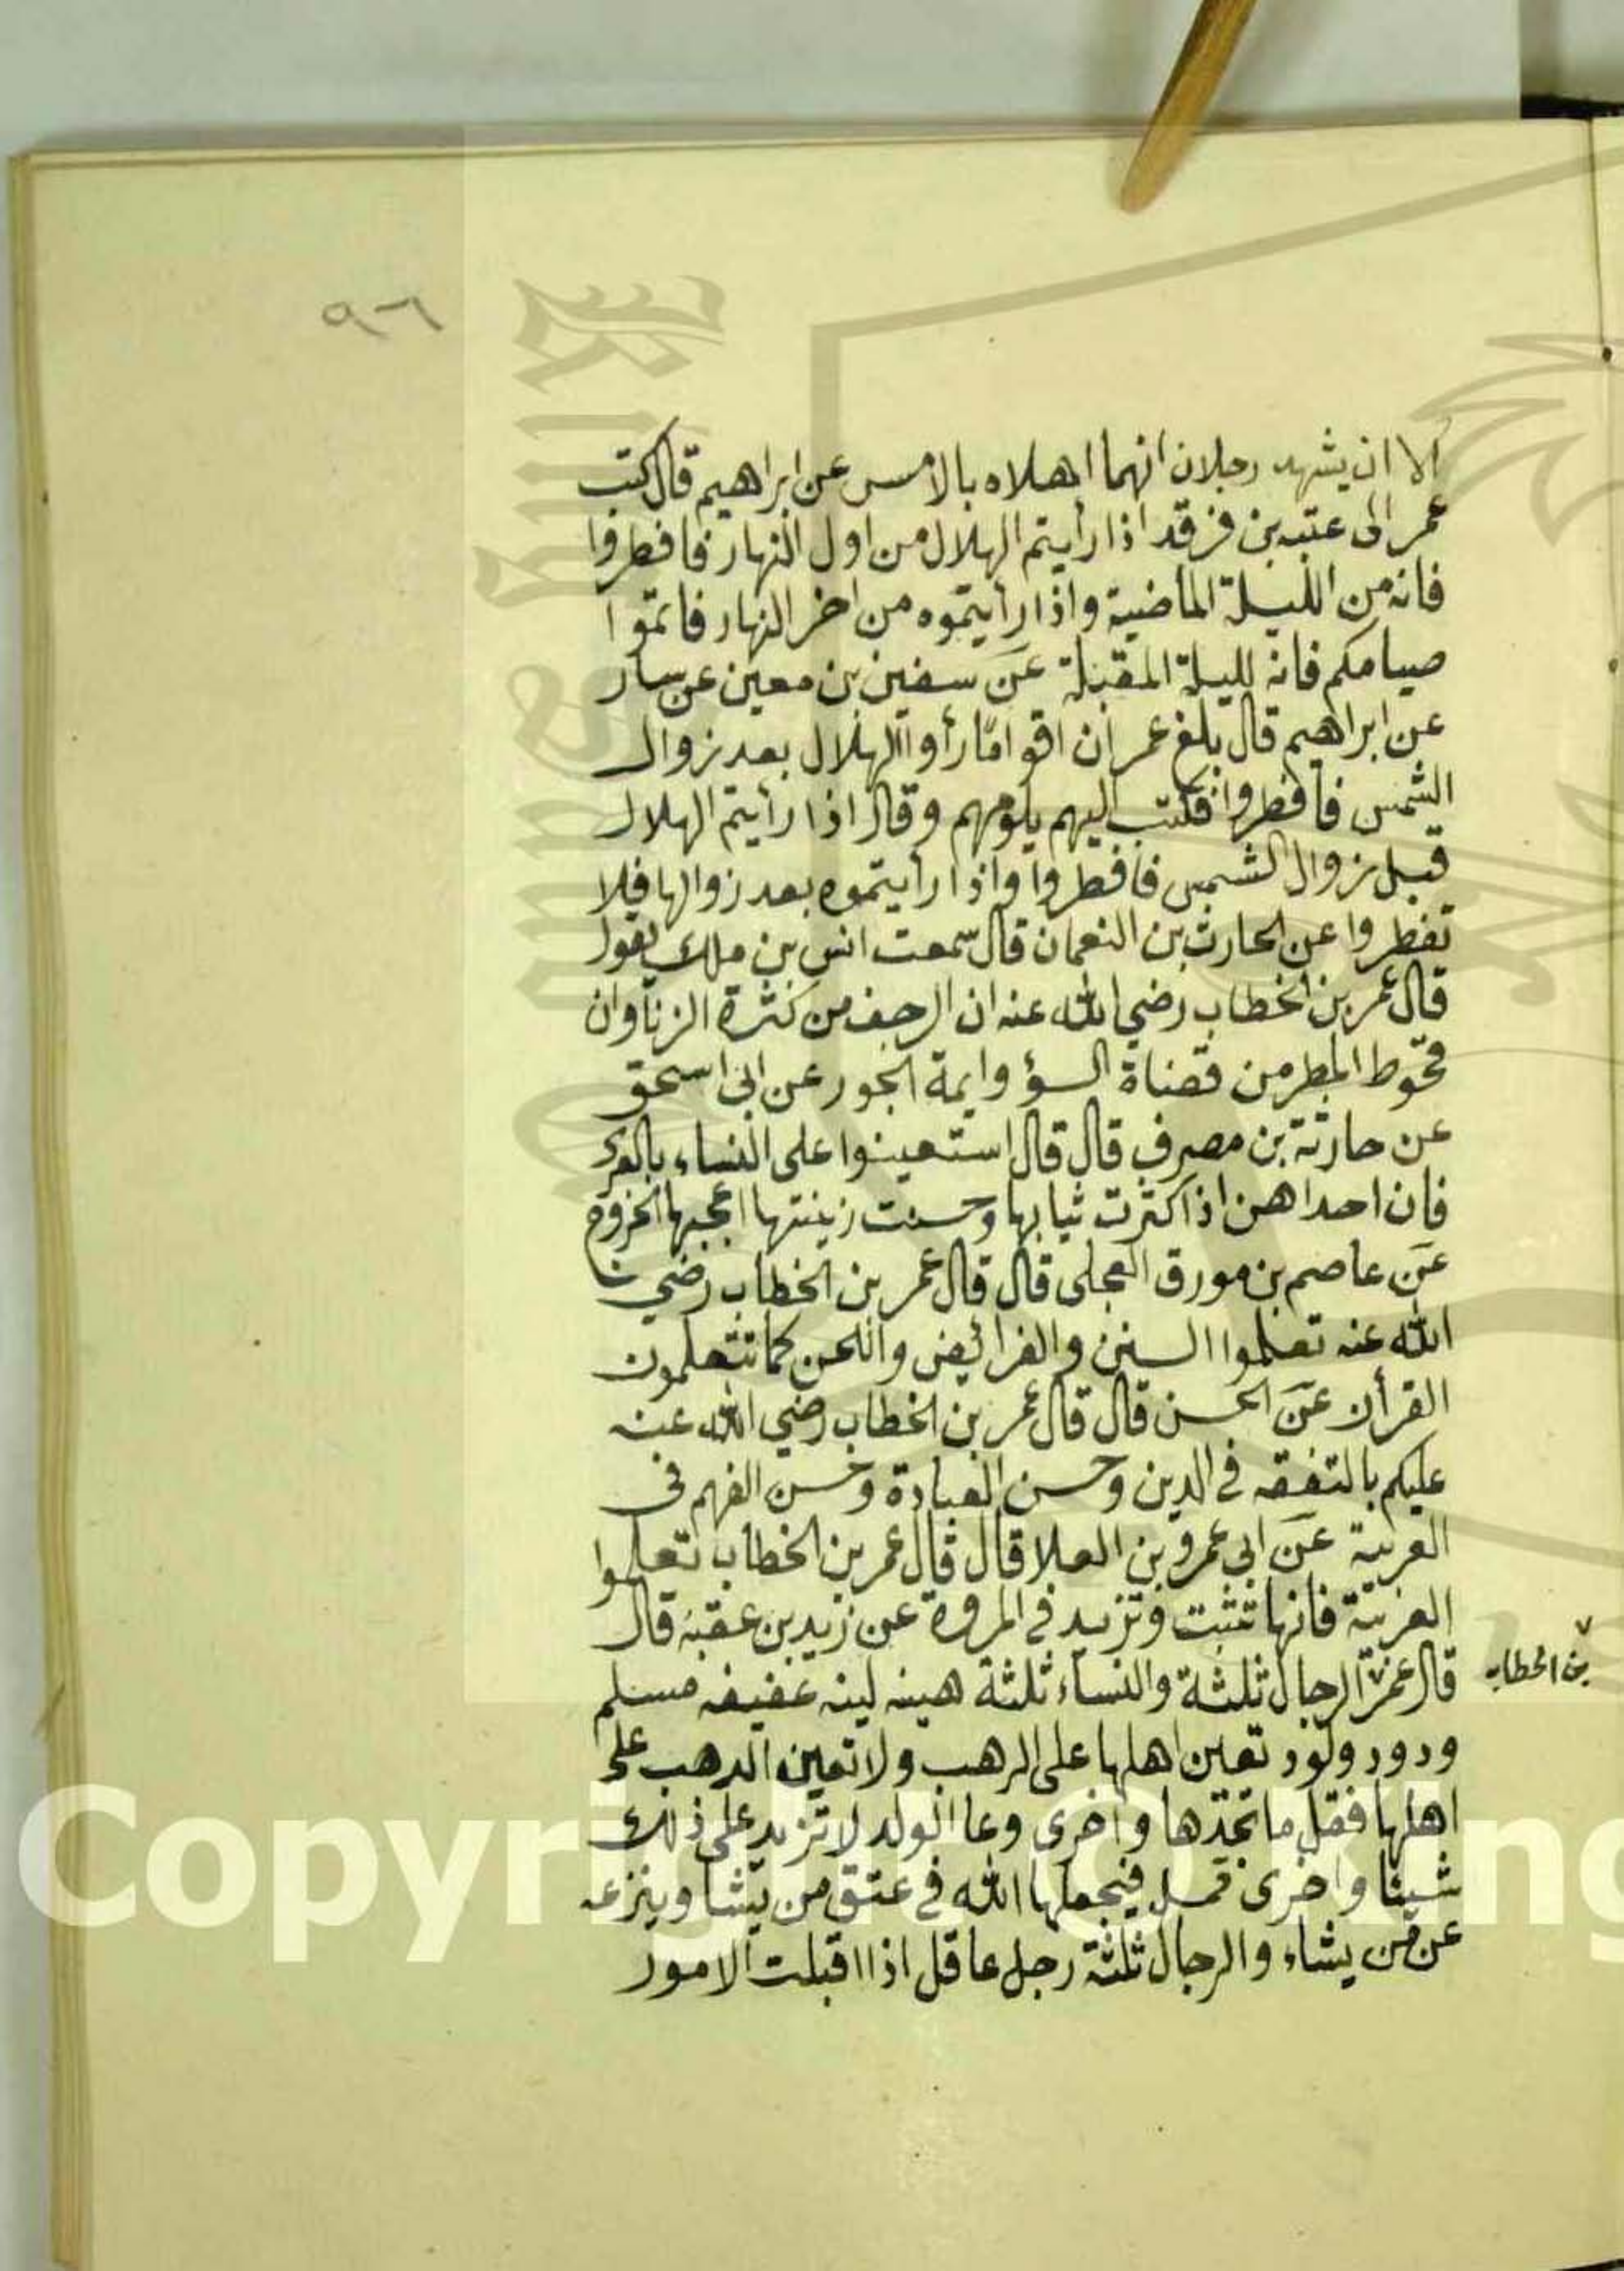 ٩٦
الا ان يشهد رجلان انهما اهلاه بالامس عن ابراهيم قال كتب
عمر الى عتبه بن فرقد اذا رأيتم الهلال من اول النهار فافطروا
فانه من الليلة الماضية واذا رأيتموه من اخر النهار فاتموا
صيامكم فانه لليلة المقبلة عن سفين بن معين عن سار
عن ابراهيم قال بلغ عمر ان اقواما رأوا الهلال بعد زوال
الشمس فافطروا فكتب اليهم يلومهم وقال اذا رأيتم الهلال
قبل زوال الشمس فافطروا واذا رأيتموه بعد زوالها فلا
تفطروا عن الحارث بن النعمان قال سمعت انس بن ملك يقول
قال عمر بن الخطاب رضي الله عنه ان الرجف من كثرة الزنا وان
قحوط المطر من قضاة السؤ وايمة الجور عن ابى اسحق
عن حارثة بن مصرف قال قال استعينوا على النساء بالعرى
فان احداهن اذا كثرت ثيابها وحسنت زينتها اعجبها الخروج
عن عاصم بن مورق العجلى قال قال عمر بن الخطاب رضي
الله عنه تعلموا السنن والفرائض واللحن كما تتعلمون
القرأن عن الحسن قال قال عمر بن الخطاب رضي الله عنه
عليكم بالتفقه في الدين وحسن العبادة وحسن الفهم فى
العربية عن ابى عمرو بن العلا قال قال عمر بن الخطاب تعلموا
العربية فانها تثبت وتزيد في المروة عن زيد بن عقبة قال
قال عمر الرجال ثلثة والنساء ثلثة هينه لينه عفيفه مسلم
بن الخطاب
ودود ولود تعين اهلها على الرهب ولا تعين الدهب على
اهلها فقل ما تجدها واخرى وعا الولد لا تزيد على ذلك
شيئا واخرى قمل فيجعلها الله في عتق من يشا وينزعه
عن من يشاء والرجال ثلثة رجل عاقل اذا اقبلت الامور
Copyright © King